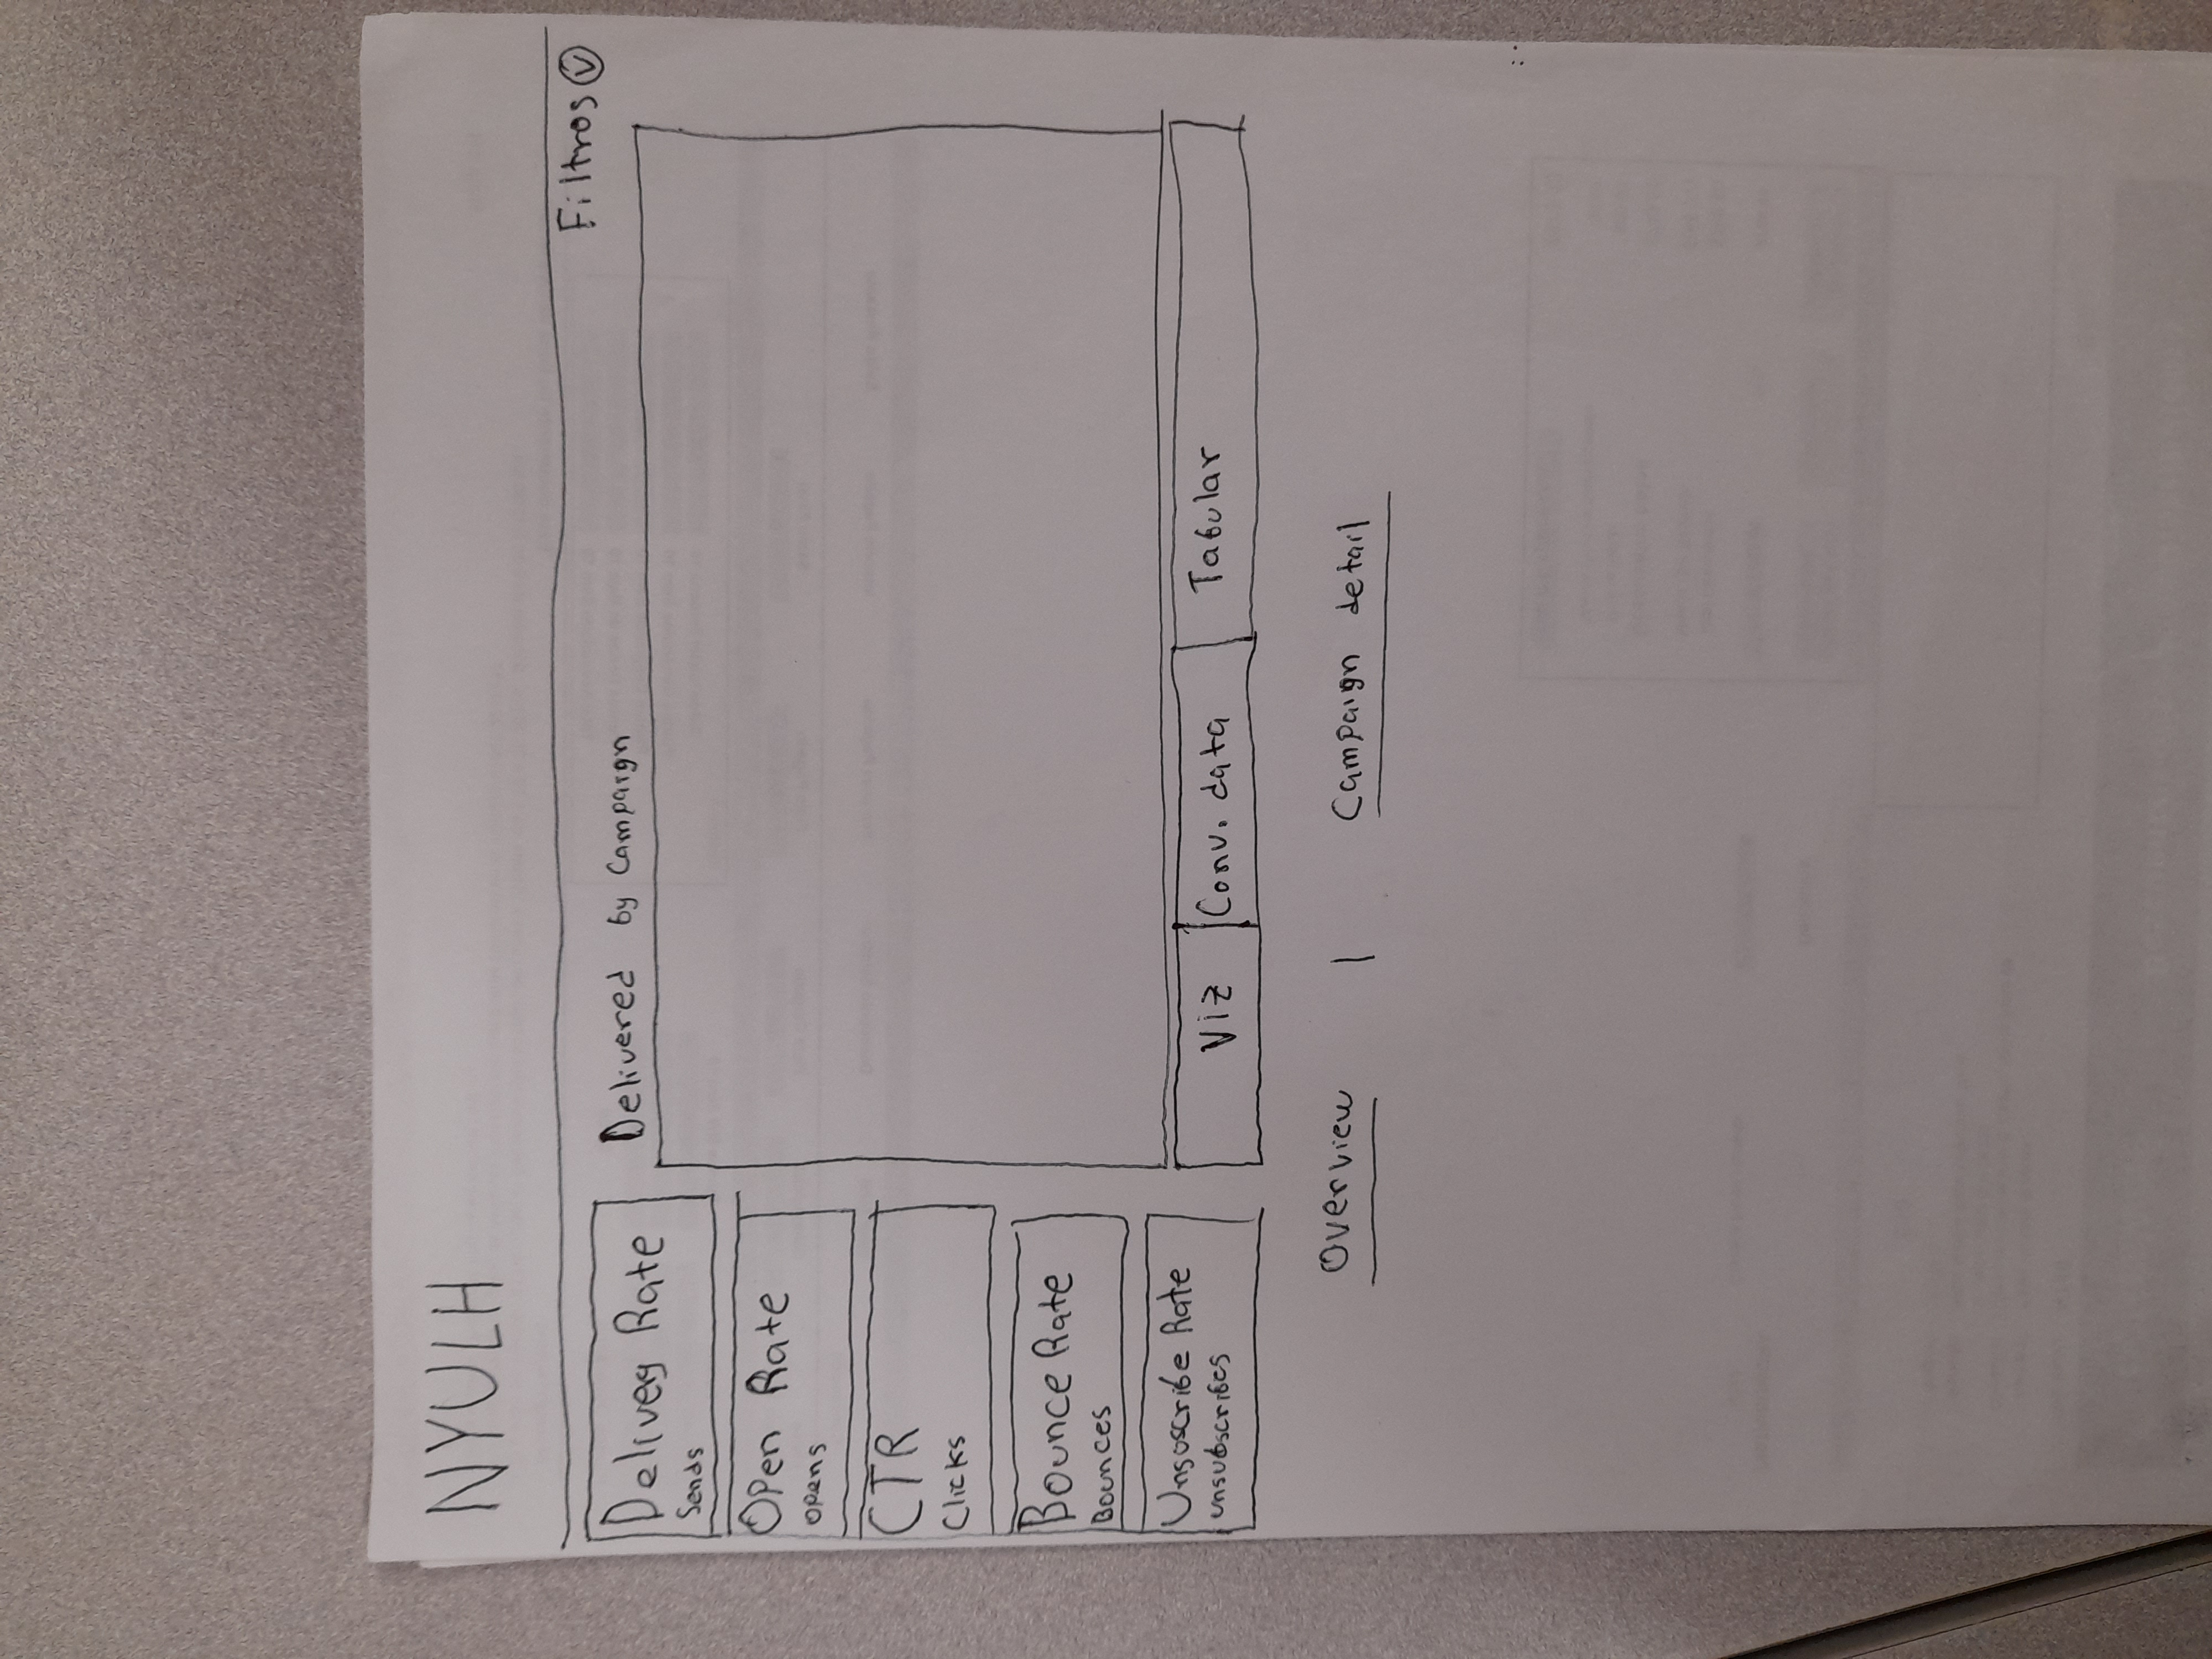 NYULH
Filtros
Delivery Rate
Sends
Open Rate
opens
CTR
Clicks
Bounce Rate
Bounces
Unsoscribe Rate
unsubscribes
Delivered by Campaign
Viz
Conv. data
Tabular
Overview | Campaign detail